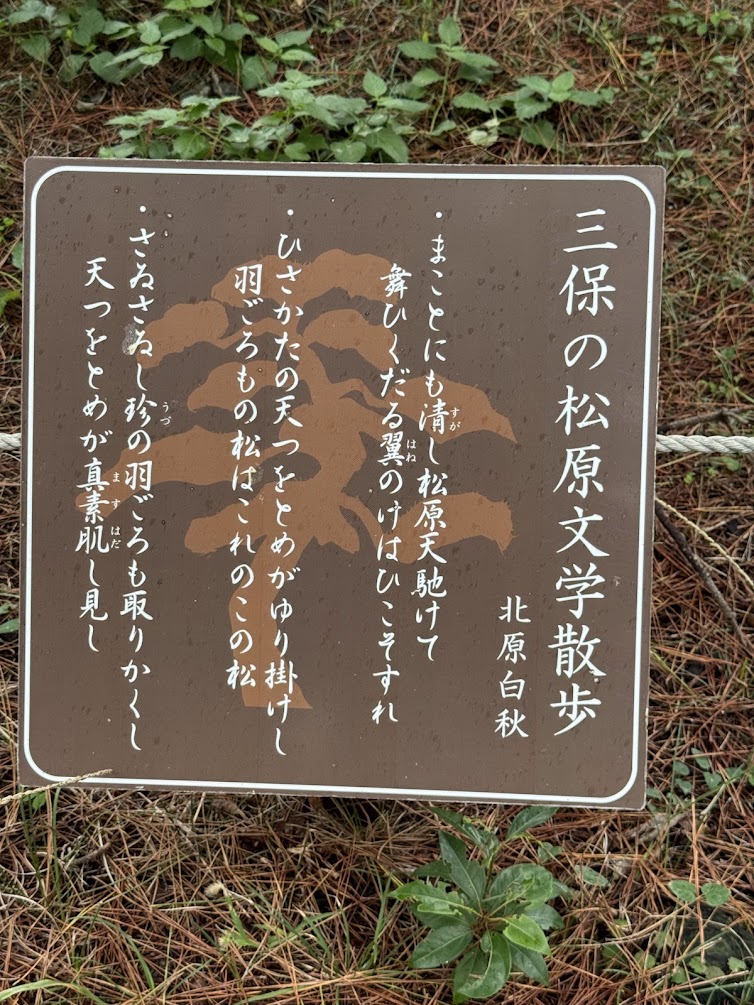 三保の松原文学散歩
北原白秋
・まことにも清し松原天馳けて
すが
舞ひくだる翼のけはひこそすれ
はね
・ひさかたの天つをとめがゆり掛けし
羽ごろもの松はこれのこの松
・さゐさゐし珍の羽ごろも取りかくし
うづ
天つをとめが真素肌し見し
ますはだ